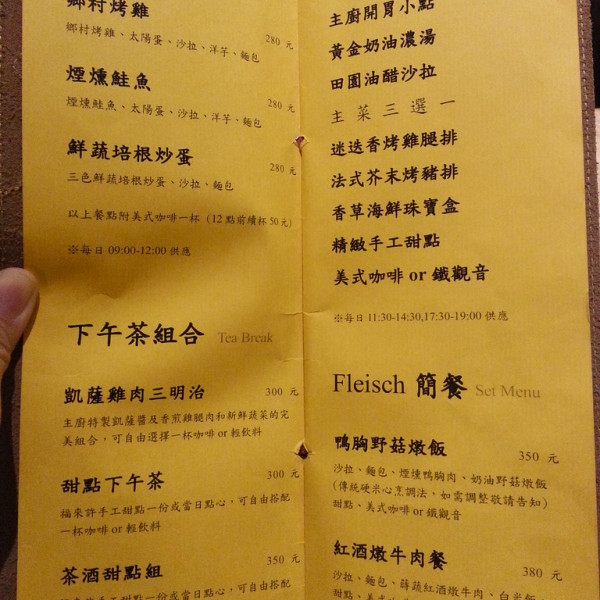 鄉村烤雞
鄉村烤雞、太陽蛋、沙拉、洋芋、麵包
280 元
煙燻鮭魚
280 元
煙燻鮭魚、太陽蛋、沙拉、洋芋、麵包
鮮蔬培根炒蛋
280 元
三色鮮蔬培根炒蛋、沙拉、麵包
以上餐點附美式咖啡一杯 (12 點前續杯 50 元)
※每日 09:00-12:00 供應
下午茶組合 Tea Break
凱薩雞肉三明治 300 元
主廚特製凱薩醬及香煎雞腿肉和新鮮蔬菜的完
美組合,可自由選擇一杯咖啡 or 輕飲料
甜點下午茶 300 元
福來許手工甜點一份或當日點心,可自由搭配
一杯咖啡 or 輕飲料
茶酒甜點組 350 元
主廚開胃小點
黃金奶油濃湯
田園油醋沙拉
主菜三選一
迷迭香烤雞腿排
法式芥末烤豬排
香草海鮮珠寶盒
精緻手工甜點
美式咖啡 or 鐵觀音
※每日 11:30-14:30,17:30-19:00 供應
Fleisch 簡餐 Set Menu
鴨胸野菇燉飯 350 元
沙拉、麵包、煙燻鴨胸肉、奶油野菇燉飯
(傳統硬米心烹調法,如需調整敬請告知)
甜點、美式咖啡 or 鐵觀音
紅酒燉牛肉餐 380 元
沙拉、麵包、蒔蔬紅酒燉牛肉、白米飯、